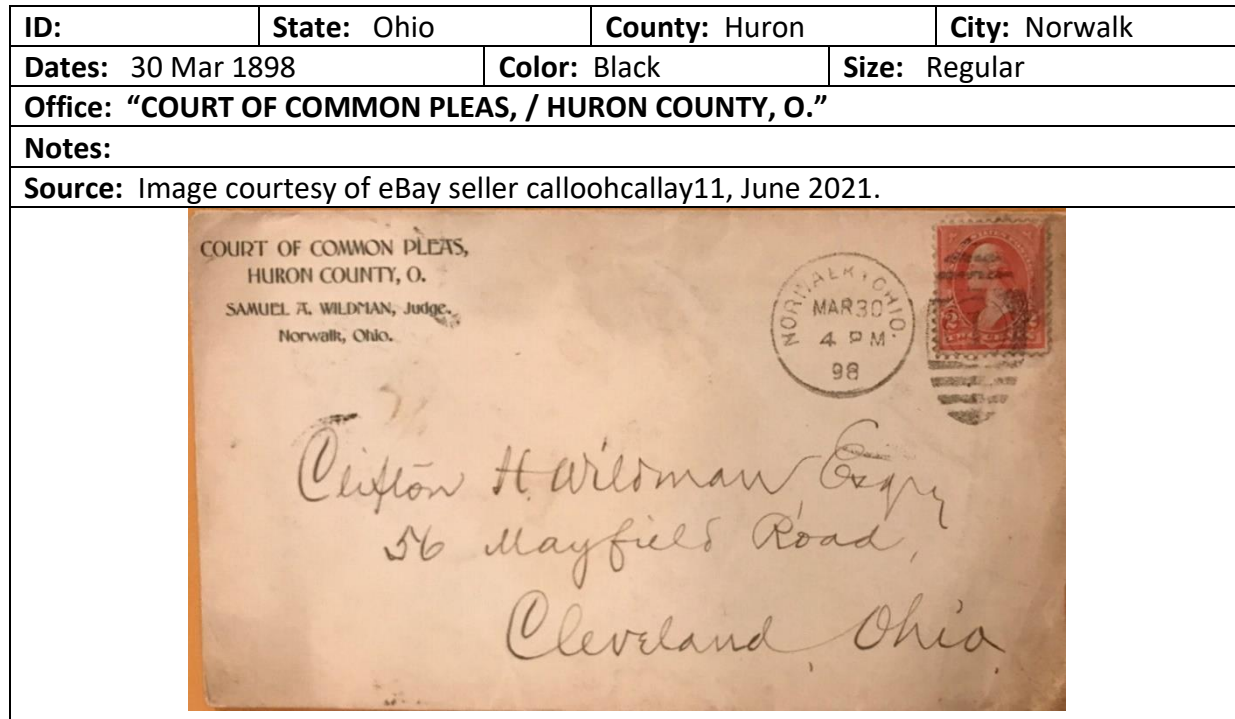 ID: State: Ohio County: Huron City: Norwalk
Dates: 30 Mar 1898 Color: Black Size: Regular
Office: “COURT OF COMMON PLEAS, / HURON COUNTY, O.”
Notes:
Source: Image courtesy of eBay seller calloohcallay11, June 2021.
COURT OF COMMON PLEAS,
HURON COUNTY, O.
SAMUEL A. WILDMAN, Judge.
Norwalk, Ohio.
NORWALK, OHIO.
MAR 30
4 PM
98
2
Clifton H. Wildman, Esqr
56 Mayfield Road,
Cleveland, Ohio